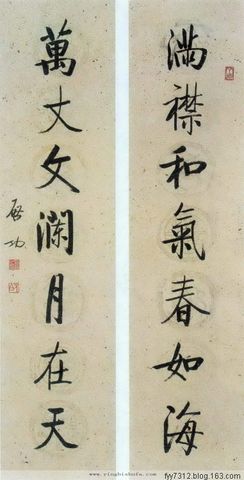 满襟和氣春如海
萬丈文澜月在天
启功
www.yingbishufa.com
fyy7312.blog.163.com